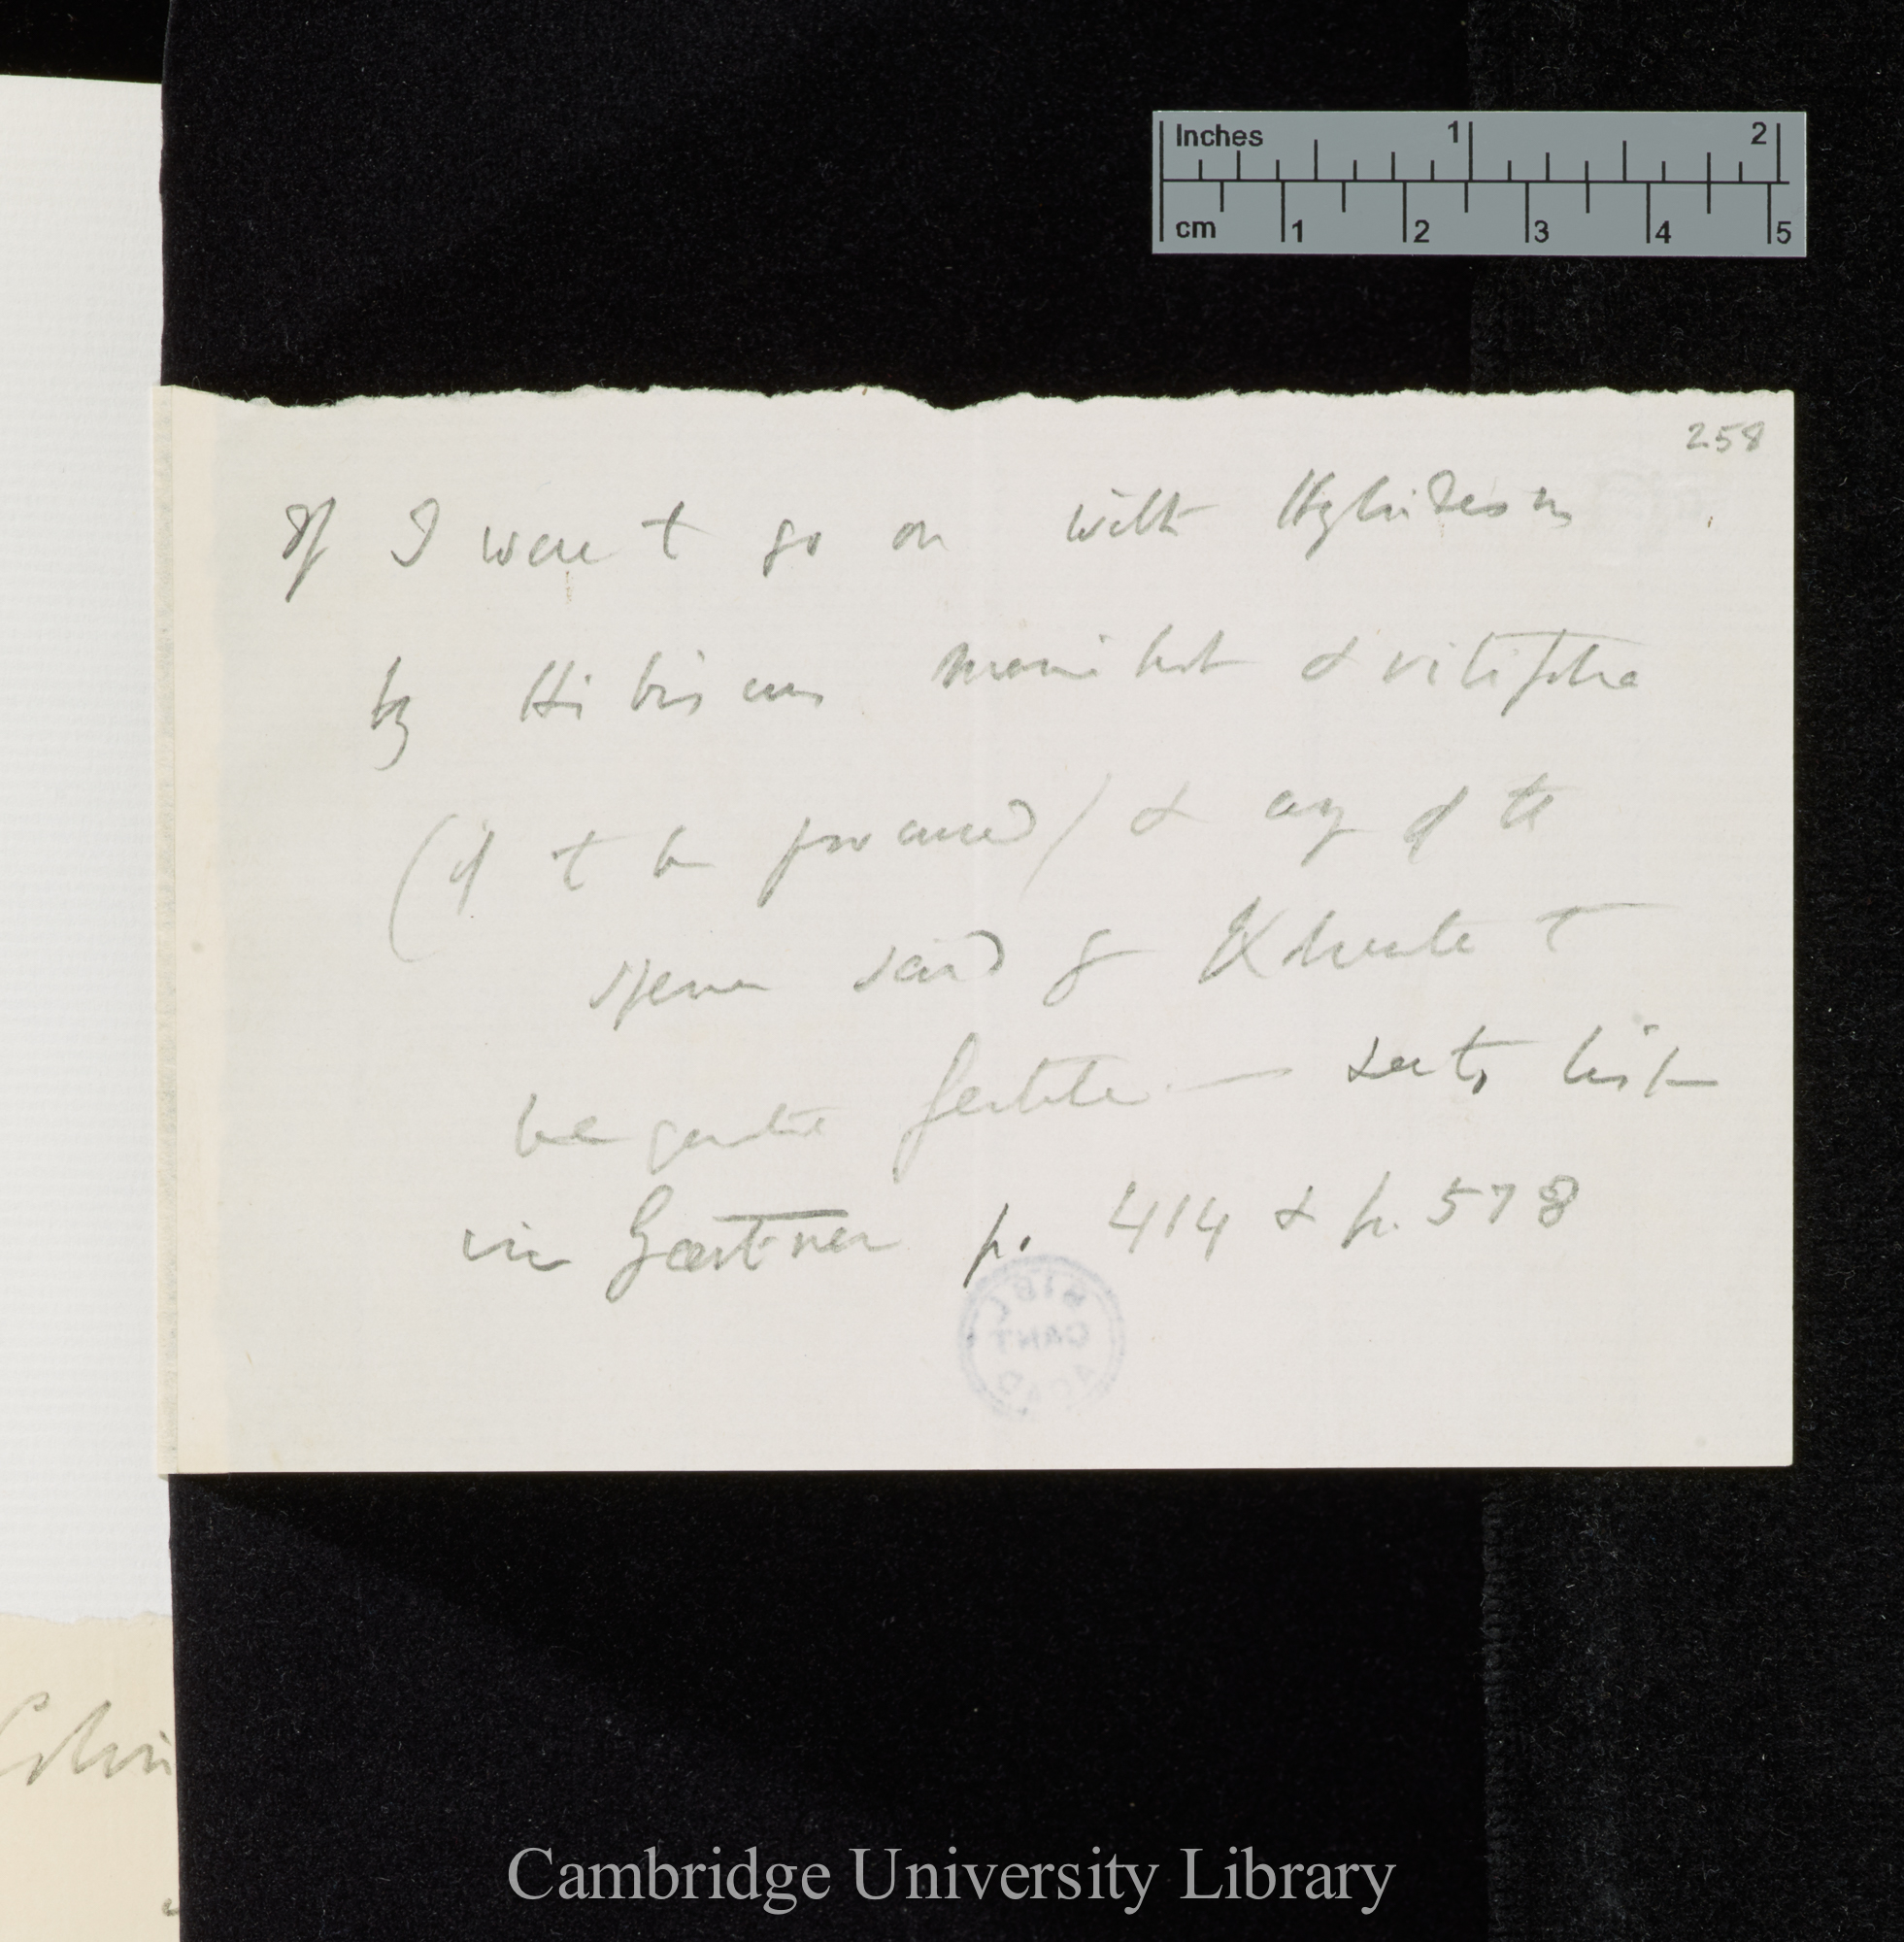 Inches 1 2
cm 1 2 3 4 5
258
If I were to go on with Hybridism
try Hibiscus manihot & vitifolia
(if to be procured) & any of the
species said by Kolreuter to
be quite fertile — see to list
in Gærtner p. 414 & p. 578
BIBL
CANT
ACAD
Cambridge University Library